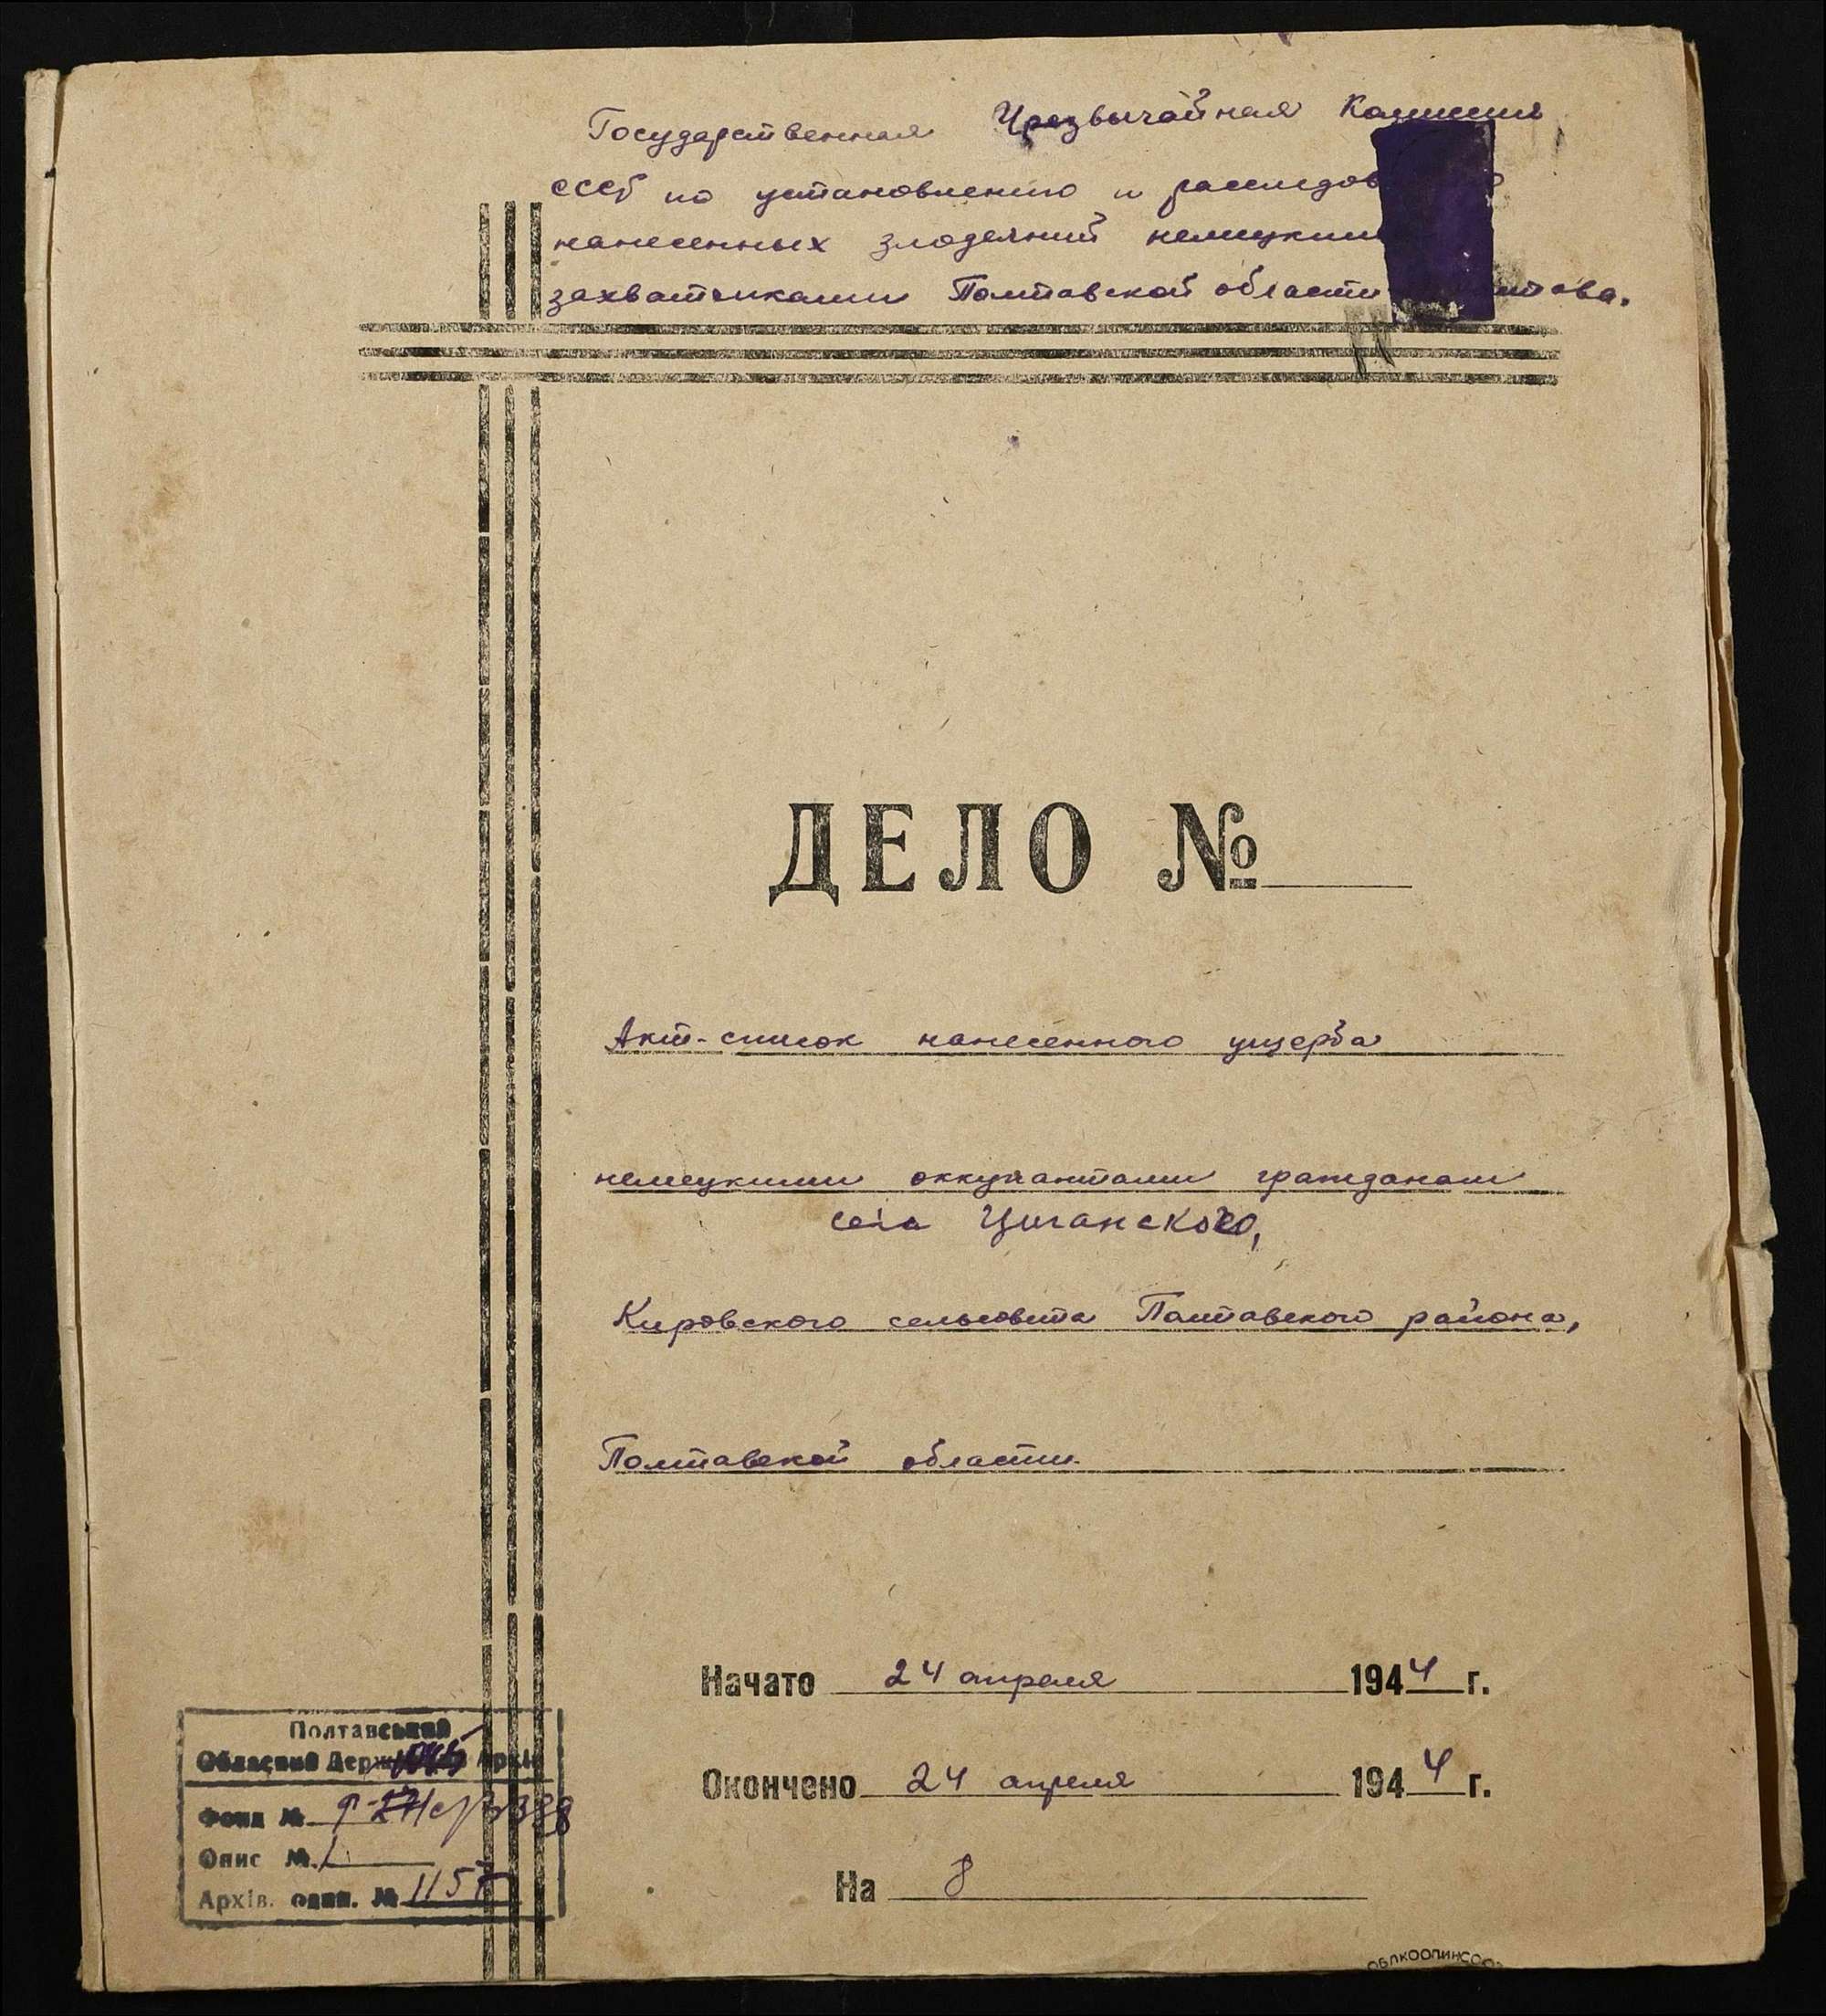 Государственная Чрезвычайная Комиссия
СССР по установлению и расследов
нанесенных злодеяний немецкими
захватчиками Полтавской области
ДЕЛО №
Акт-список нанесенного ущерба
немецкими оккупантами гражданам
села Циганского,
Кировского сельсовета Полтавского района,
Полтавской области
Начато 24 апреля 1944 г.
Окончено 24 апреля 1944 г.
На 8
Полтавський
Обласний Держ Архів
Фонд №
Опис № 1
Архів. один. №